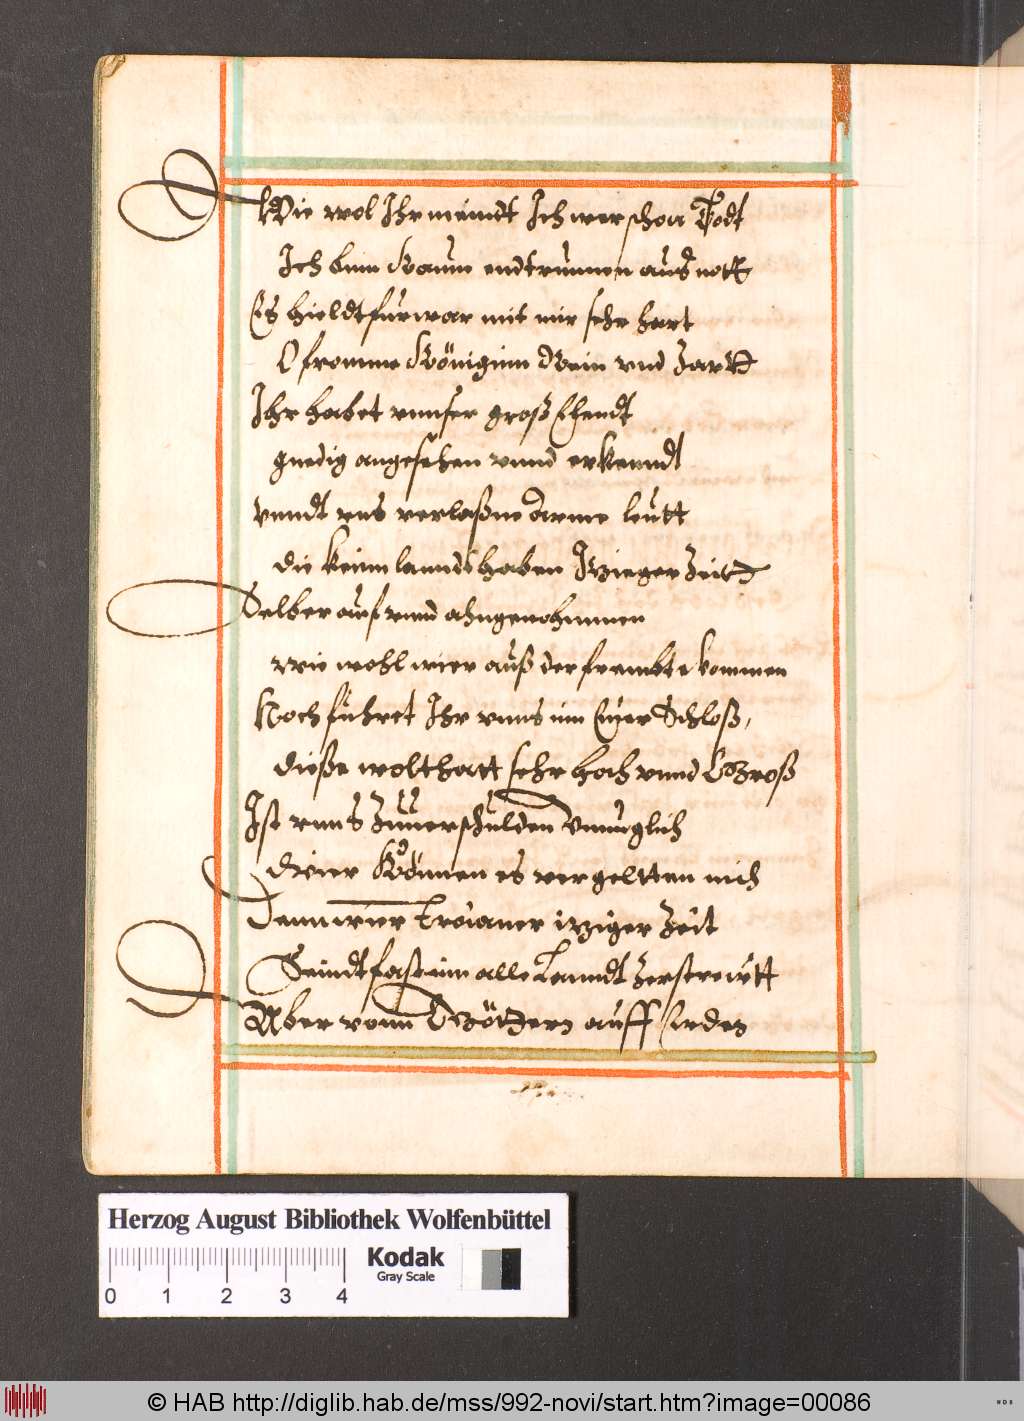 Wie wol Ihr meindt Ich wer schon Todt
Ich binn Kaum endtrunnen aus nott
Es hieldt furwar mit mir sehr hart
O fromme Königinn Rein vnd Zartt
Ihr habet vnnser groß Elendt
gnedig angesehen vnnd erkenndt
vnndt vns verlaßne Arme leutt
die kein lanndt haben Itzieger Zeitt
Selber auf vnnd ahngenohmmen
wie wohl wier auß der frembte kommen
Noch führet Ihr vnns inn Euer Schloß,
dieße wolthatt sehr hoh vnnd Groß
Ist vnns Zuuerschulden vnmuglich
Wier Können es vergeltten nich
Dann wier Troianer itziger Zeit
Seindt fast inn alle Lanndt Zerstreuett
Aber vonn Göttern auff Erden
Herzog August Bibliothek Wolfenbüttel
Kodak
Gray Scale
0 1 2 3 4
© HAB http://diglib.hab.de/mss/992-novi/start.htm?image=00086